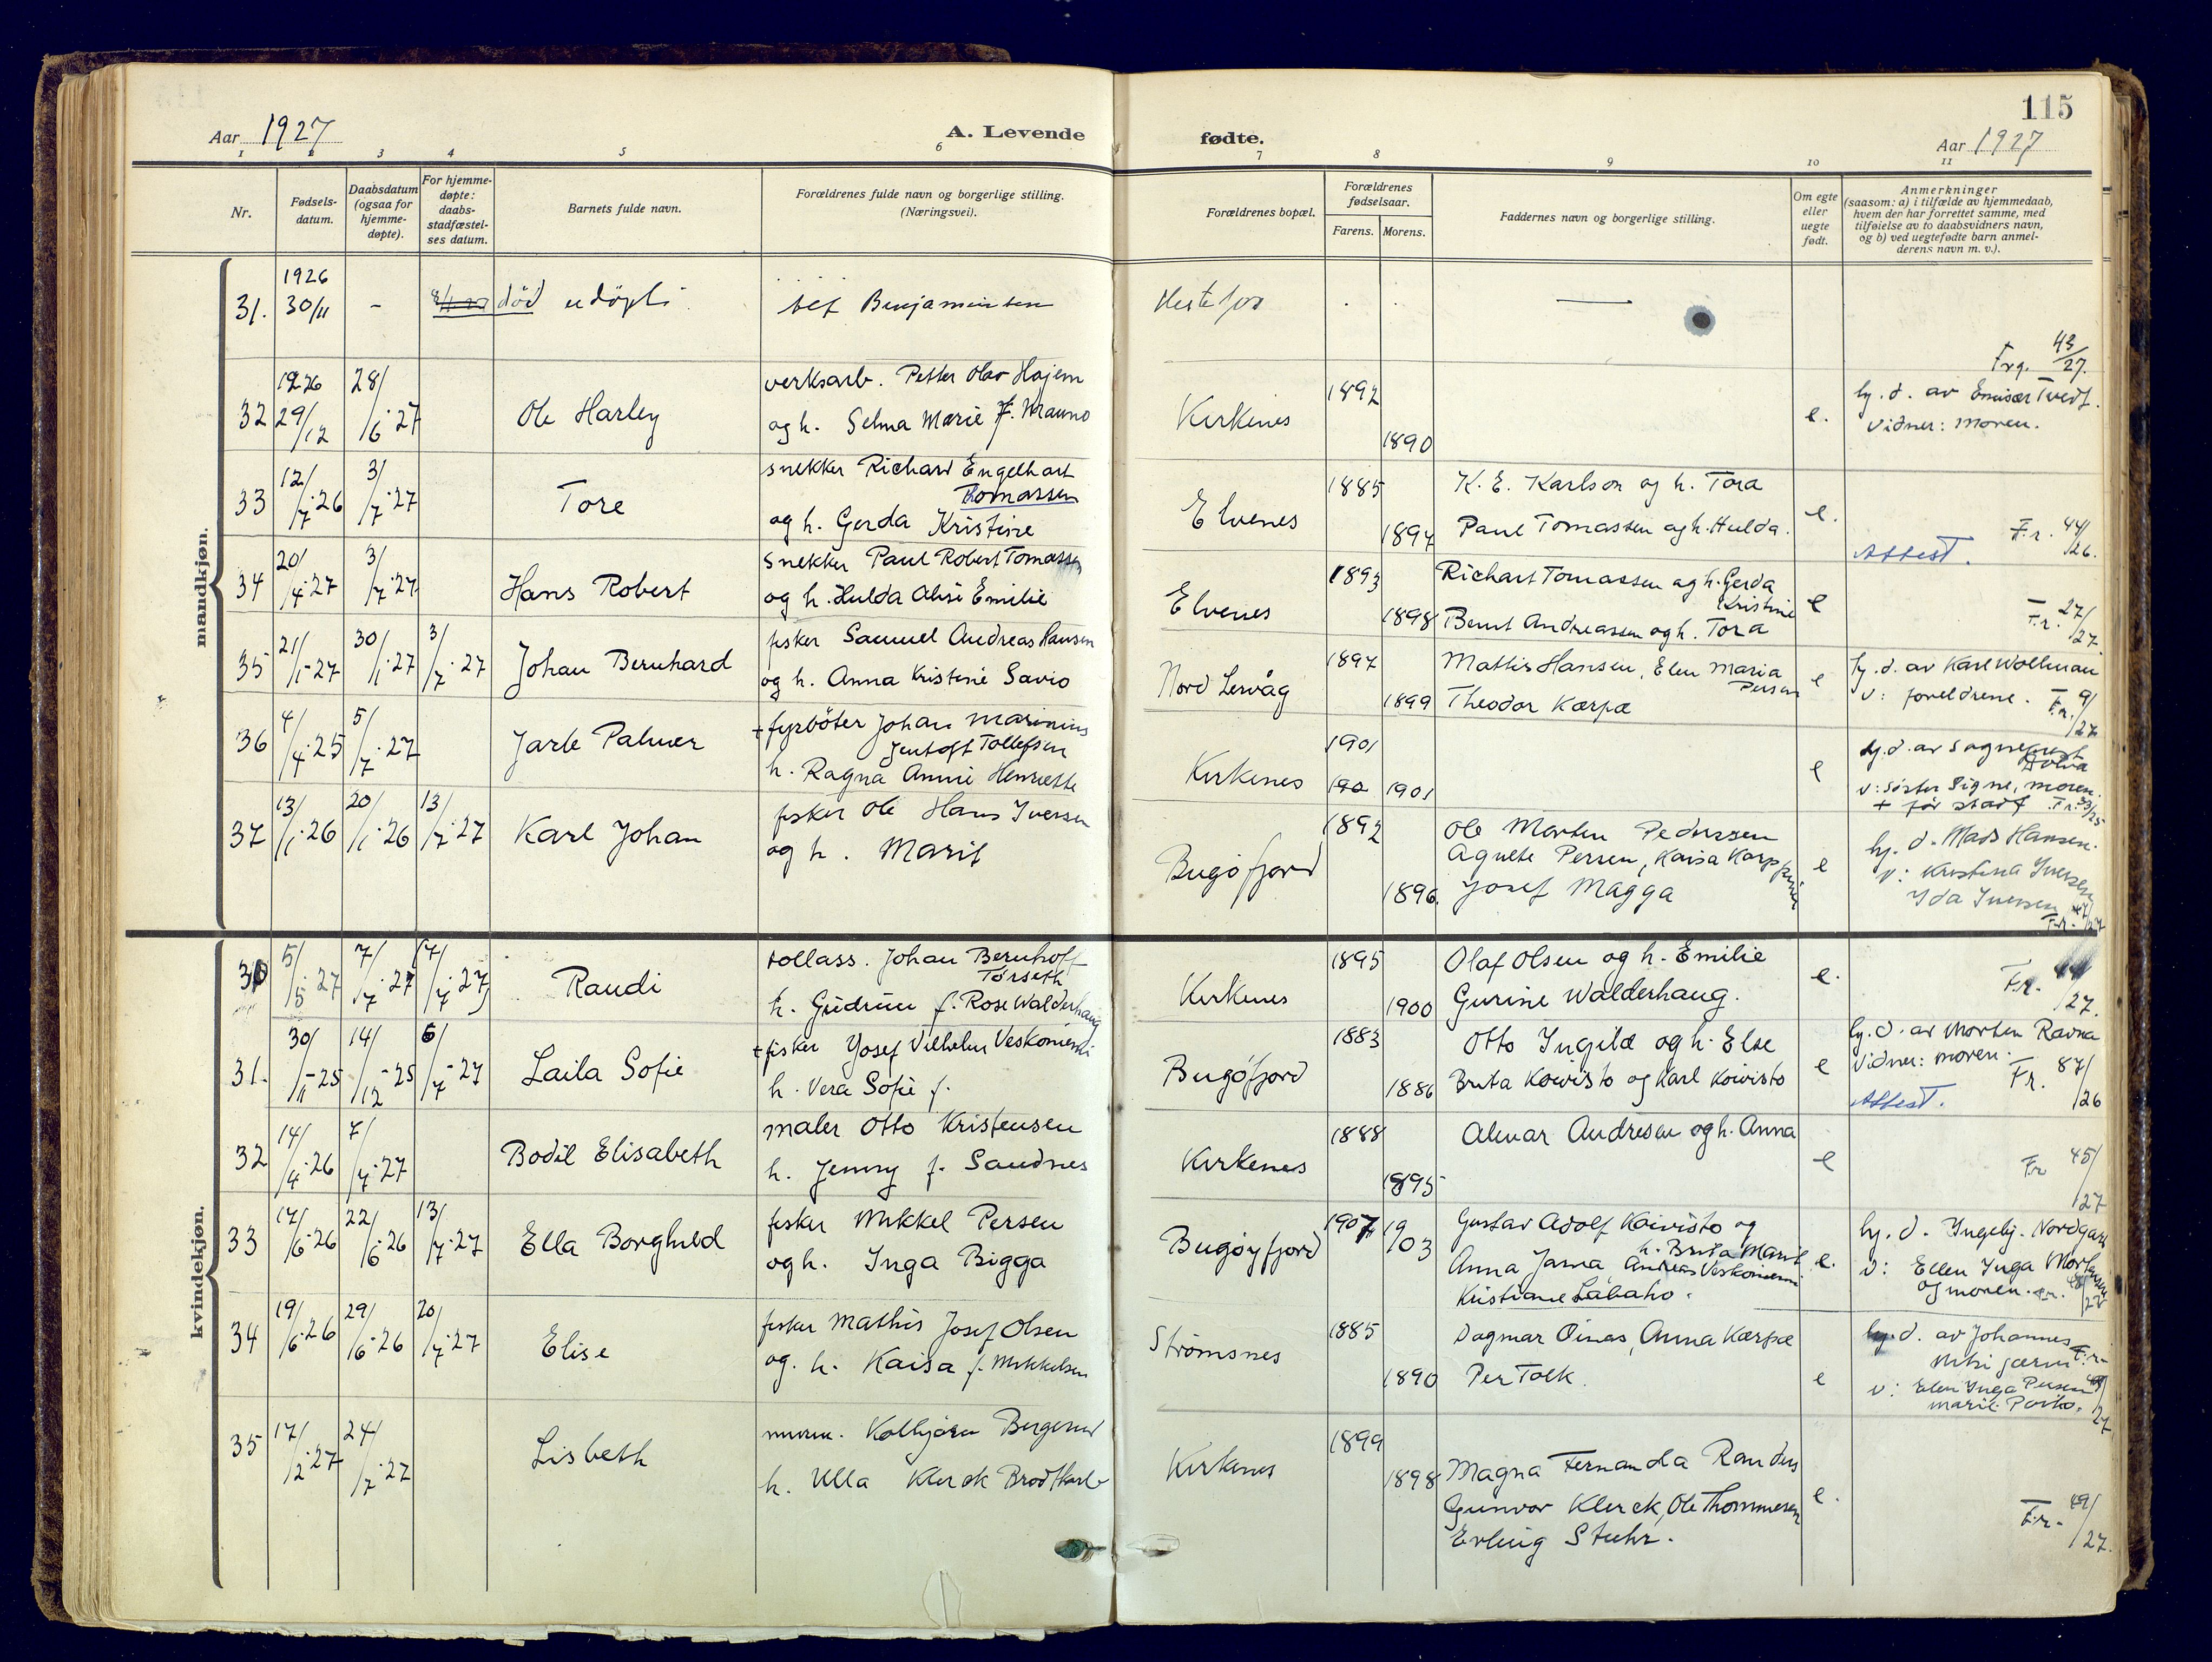 115
Aar 1927
A. Levende
fødte.
Aar 1927
1 2 3 4 5 6 7 8 9 10 11
Nr.
Fødsels-
datum.
Daabsdatum
(ogsaa for
hjemme-
døpte).
For hjemme-
døpte:
daabs-
stadfæstel-
ses datum.
Barnets fulde navn.
Forældrenes fulde navn og borgerlige stilling.
(Næringsvei).
Forældrenes bopæl.
Forældrenes
fødselsaar.
Farens. Morens.
Faddernes navn og borgerlige stilling.
Om egte
eller
uegte
født.
Anmerkninger
(saasom: a) i tilfælde av hjemmedaab,
hvem der har forrettet samme, med
tilføielse av to daabsvidners navn,
og b) ved uegtefødte barn anmel-
derens navn m. v.).
mandkjøn.
31. 1926 30/11 - død udøpt Benjaminsen
32 1926 29/12 28/6 27 Ole Harley
verksarb. Petter Olav Hojem
og h. Selma Marie
Kirkenes 1892 1890 e.
Frg. 43/27.
hj. d. av Emisær Tvedt.
Vidner: moren.
33 12/7 26 3/7 27 Tore
snekker Richard Engelhart
Tomassen
og h. Gerda Kristine
Elvenes 1885 1894
K. E. Karlson og h. Tora
Paul Tomassen og h. Hulda.
e.
Attest. Fr. 44/26.
34 20/4 27 3/7 27 Hans Robert
snekker Paul Robert Tomassen
og h. Hulda Emilie
Elvenes 1893 1898
Richart Tomassen og h. Gerda
Kristine
Bernt Andreassen og h. Tora
e
Fr. 27/27.
35 21/1 27 30/1 27 3/7 27 Johan Bernhard
fisker Samuel Andreas Hansen
og h. Anna Kristine Savio
Nord Lervåg 1897 1899
Mathis Hansen, Elen Maria
Persen
Theodor Karpæ
e
hj. d. av Karl Wollman
v: foreldrene. Fr. 9/27
36 4/4 25 5/7 27 Jarle Palmer
+ fyrbøter Johan Marinius
Jentoft Tollefsen
h. Ragna Annie Henriette
Kirkenes 1901 1901 e
hj. d. av sogneprest
v: søster Signe, moren.
+ før stadf.
37 13/1 26 20/1 26 13/7 27 Karl Johan
fisker Ole Hans Iversen
og h. Marit
Bugøfjord 1892 1896.
Ole Morten Pedersen
Agnete Persen, Kaisa Karp
Josef Magga
e
hj. d. Mads Hansen.
v: Kristina Iversen
Ida Iversen
kvindekjøn.
30 5/5 27 7/7 27 Randi
tollass. Johan Bernhoff
Tørseth
h. Gudrun f. Rose Walderhaug
Kirkenes 1895 1900
Olaf Olsen og h. Emilie
Gurine Walderhaug.
e.
Fr. 44/27.
31. 30/11-25 14/12-25 6/7-27 Laila Sofie
+ fisker Yosef Vilhelm Veskoniemi
h. Vera Sofie f.
Bugøfjord 1883 1886
Otto Ingilæ og h. Else
Brita Koivisto og Karl Koivisto
e
hj. d. av Morten Ravna
Vidner: moren.
Attest. Fr. 87/26
32 14/4 26 7/7 27 Bodil Elisabeth
maler Otto Kristensen
h. Jenny f. Sandnes
Kirkenes 1888 1895
Alvar Andresen og h. Anna
e
Fr 45/27
33 17/6-26 22/6 26 13/7-27 Ella Borghild
fisker Mikkel Persen
og h. Inga Bigga
Bugøyfjord 1907 1903
Gustav Adolf Koivisto og
h. Brita Marit
Anna Jarna Andreas Veskoniemi
Kristiane Labaho.
e.
hj. d. Ingebj. Nordgan
v: Ellen Inga Mortensen
og moren.
34 19/6-26 29/6 26 20/7 27 Elise
fisker Mathis Josef Olsen
og h. Kaisa f. Mikkelsen
Strømsnes 1885 1890
Dagmar Oinas, Anna Karpæ
Per Tolk.
e
hj. d. av Johannes
v: Elen Inga Persen
Marie
35 17/2 27 24/7 27 Lisbeth
Kolbjørn Bergerud
h. Ulla Klerck
Kirkenes 1899 1898
Magna Fernanda Randers
Gunvor Klerck, Ole Thommesen
Erling Stuhr.
e.
Fr. 49/27.